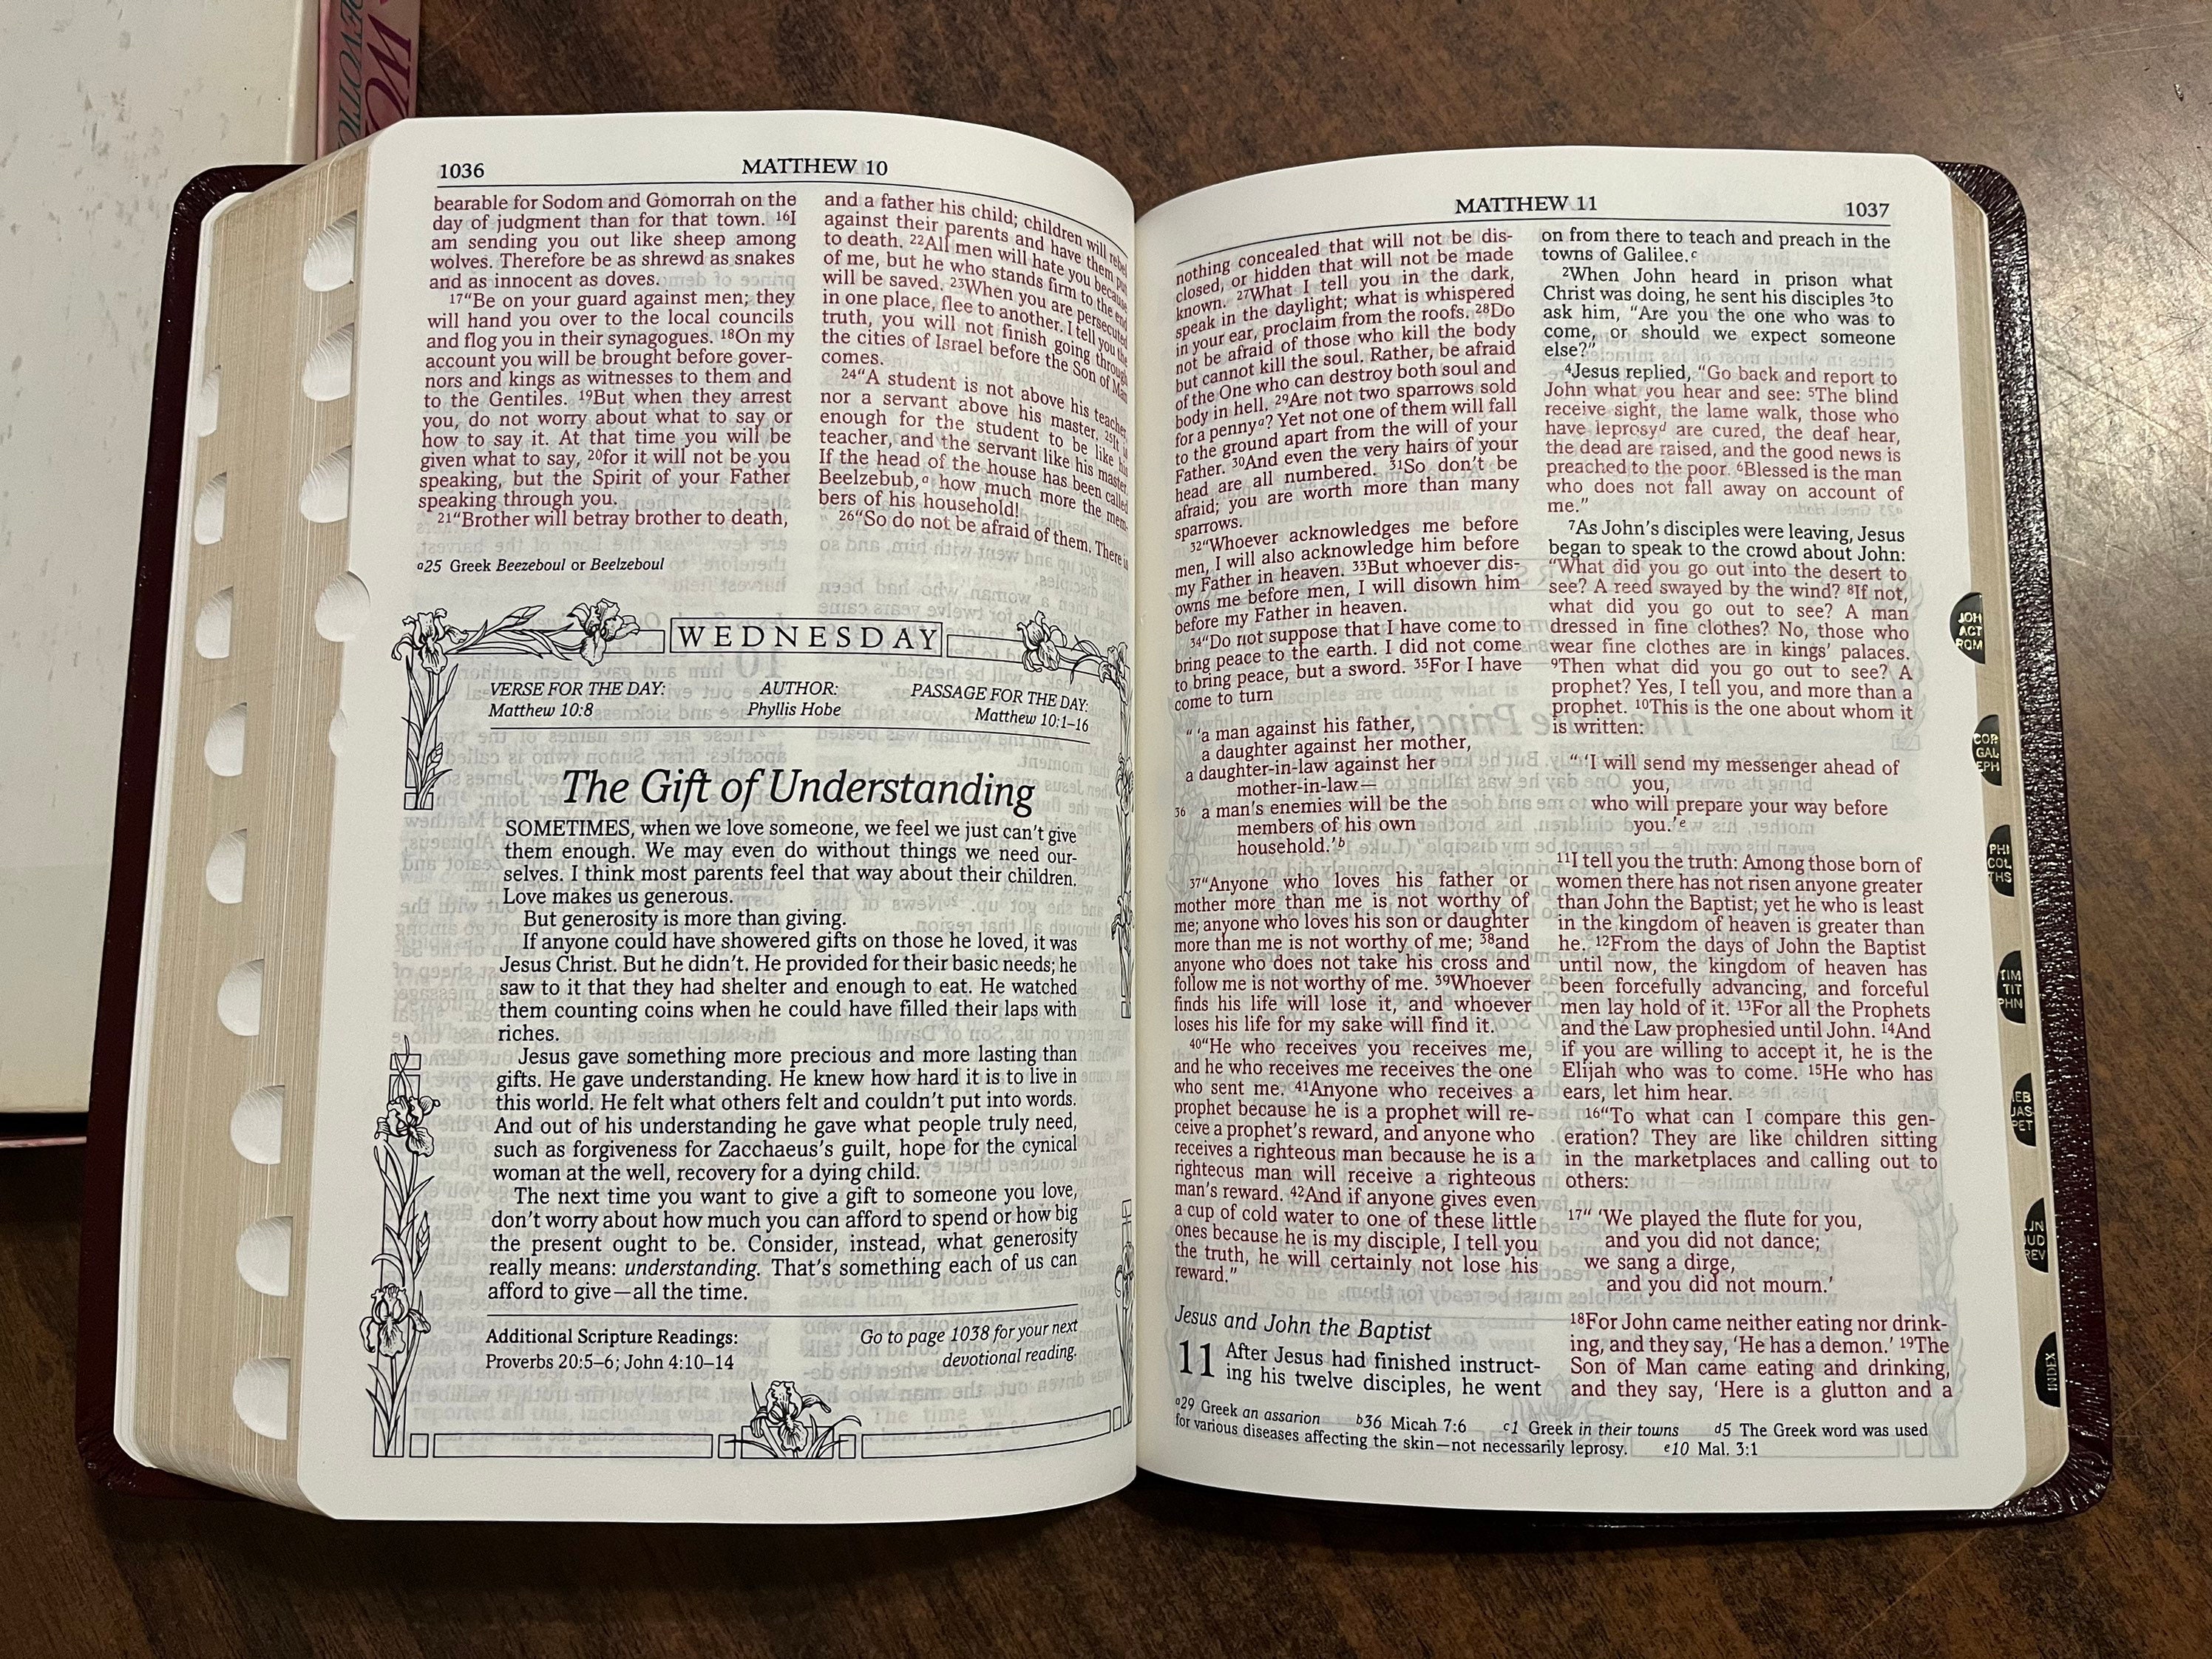 WO
DEVOTIO
1036
MATTHEW 10
bearable for Sodom and Gomorrah on the
day of judgment than for that town. 16I
am sending you out like sheep among
wolves. Therefore be as shrewd as snakes
and as innocent as doves.
17“Be on your guard against men; they
will hand you over to the local councils
and flog you in their synagogues. 18On my
account you will be brought before gover-
nors and kings as witnesses to them and
to the Gentiles. 19But when they arrest
you, do not worry about what to say or
how to say it. At that time you will be
given what to say, 20for it will not be you
speaking, but the Spirit of your Father
speaking through you.
21“Brother will betray brother to death,
and a father his child; children will rebel
against their parents and have them put
to death. 22All men will hate you because
of me, but he who stands firm to the end
will be saved. 23When you are persecuted
in one place, flee to another. I tell you the
truth, you will not finish going through
the cities of Israel before the Son of Man
comes.
24“A student is not above his teacher,
nor a servant above his master. 25It is
enough for the student to be like his
teacher, and the servant like his master.
If the head of the house has been called
Beelzebub,a how much more the mem-
bers of his household!
26“So do not be afraid of them. There is
a25 Greek Beezeboul or Beelzeboul
WEDNESDAY
VERSE FOR THE DAY:
Matthew 10:8
AUTHOR:
Phyllis Hobe
PASSAGE FOR THE DAY:
Matthew 10:1–16
The Gift of Understanding
SOMETIMES, when we love someone, we feel we just can’t give
them enough. We may even do without things we need our-
selves. I think most parents feel that way about their children.
Love makes us generous.
But generosity is more than giving.
If anyone could have showered gifts on those he loved, it was
Jesus Christ. But he didn’t. He provided for their basic needs; he
saw to it that they had shelter and enough to eat. He watched
them counting coins when he could have filled their laps with
riches.
Jesus gave something more precious and more lasting than
gifts. He gave understanding. He knew how hard it is to live in
this world. He felt what others felt and couldn’t put into words.
And out of his understanding he gave what people truly need,
such as forgiveness for Zacchaeus’s guilt, hope for the cynical
woman at the well, recovery for a dying child.
The next time you want to give a gift to someone you love,
don’t worry about how much you can afford to spend or how big
the present ought to be. Consider, instead, what generosity
really means: understanding. That’s something each of us can
afford to give—all the time.
Additional Scripture Readings:
Proverbs 20:5–6; John 4:10–14
Go to page 1038 for your next
devotional reading.
MATTHEW 11
1037
nothing concealed that will not be dis-
closed, or hidden that will not be made
known. 27What I tell you in the dark,
speak in the daylight; what is whispered
in your ear, proclaim from the roofs. 28Do
not be afraid of those who kill the body
but cannot kill the soul. Rather, be afraid
of the One who can destroy both soul and
body in hell. 29Are not two sparrows sold
for a pennya? Yet not one of them will fall
to the ground apart from the will of your
Father. 30And even the very hairs of your
head are all numbered. 31So don’t be
afraid; you are worth more than many
sparrows.
32“Whoever acknowledges me before
men, I will also acknowledge him before
my Father in heaven. 33But whoever dis-
owns me before men, I will disown him
before my Father in heaven.
34“Do not suppose that I have come to
bring peace to the earth. I did not come
to bring peace, but a sword. 35For I have
come to turn
“ ‘a man against his father,
a daughter against her mother,
a daughter-in-law against her
mother-in-law—
36 a man’s enemies will be the
members of his own
household.’b
37“Anyone who loves his father or
mother more than me is not worthy of
me; anyone who loves his son or daughter
more than me is not worthy of me; 38and
anyone who does not take his cross and
follow me is not worthy of me. 39Whoever
finds his life will lose it, and whoever
loses his life for my sake will find it.
40“He who receives you receives me,
and he who receives me receives the one
who sent me. 41Anyone who receives a
prophet because he is a prophet will re-
ceive a prophet’s reward, and anyone who
receives a righteous man because he is a
righteous man will receive a righteous
man’s reward. 42And if anyone gives even
a cup of cold water to one of these little
ones because he is my disciple, I tell you
the truth, he will certainly not lose his
reward.”
Jesus and John the Baptist
11 After Jesus had finished instruct-
ing his twelve disciples, he went
on from there to teach and preach in the
towns of Galilee.c
2When John heard in prison what
Christ was doing, he sent his disciples 3to
ask him, “Are you the one who was to
come, or should we expect someone
else?”
4Jesus replied, “Go back and report to
John what you hear and see: 5The blind
receive sight, the lame walk, those who
have leprosyd are cured, the deaf hear,
the dead are raised, and the good news is
preached to the poor. 6Blessed is the man
who does not fall away on account of
me.”
7As John’s disciples were leaving, Jesus
began to speak to the crowd about John:
“What did you go out into the desert to
see? A reed swayed by the wind? 8If not,
what did you go out to see? A man
dressed in fine clothes? No, those who
wear fine clothes are in kings’ palaces.
9Then what did you go out to see? A
prophet? Yes, I tell you, and more than a
prophet. 10This is the one about whom it
is written:
“ ‘I will send my messenger ahead of
you,
who will prepare your way before
you.’e
11I tell you the truth: Among those born of
women there has not risen anyone greater
than John the Baptist; yet he who is least
in the kingdom of heaven is greater than
he. 12From the days of John the Baptist
until now, the kingdom of heaven has
been forcefully advancing, and forceful
men lay hold of it. 13For all the Prophets
and the Law prophesied until John. 14And
if you are willing to accept it, he is the
Elijah who was to come. 15He who has
ears, let him hear.
16“To what can I compare this gen-
eration? They are like children sitting
in the marketplaces and calling out to
others:
17“ ‘We played the flute for you,
and you did not dance;
we sang a dirge,
and you did not mourn.’
18For John came neither eating nor drink-
ing, and they say, ‘He has a demon.’ 19The
Son of Man came eating and drinking,
and they say, ‘Here is a glutton and a
a29 Greek an assarion b36 Micah 7:6 c1 Greek in their towns d5 The Greek word was used
for various diseases affecting the skin—not necessarily leprosy. e10 Mal. 3:1
JOH
ACT
ROM
COR
GAL
EPH
PHI
COL
THS
TIM
TIT
PHN
EB
JAS
PET
JN
JUD
REV
INDEX